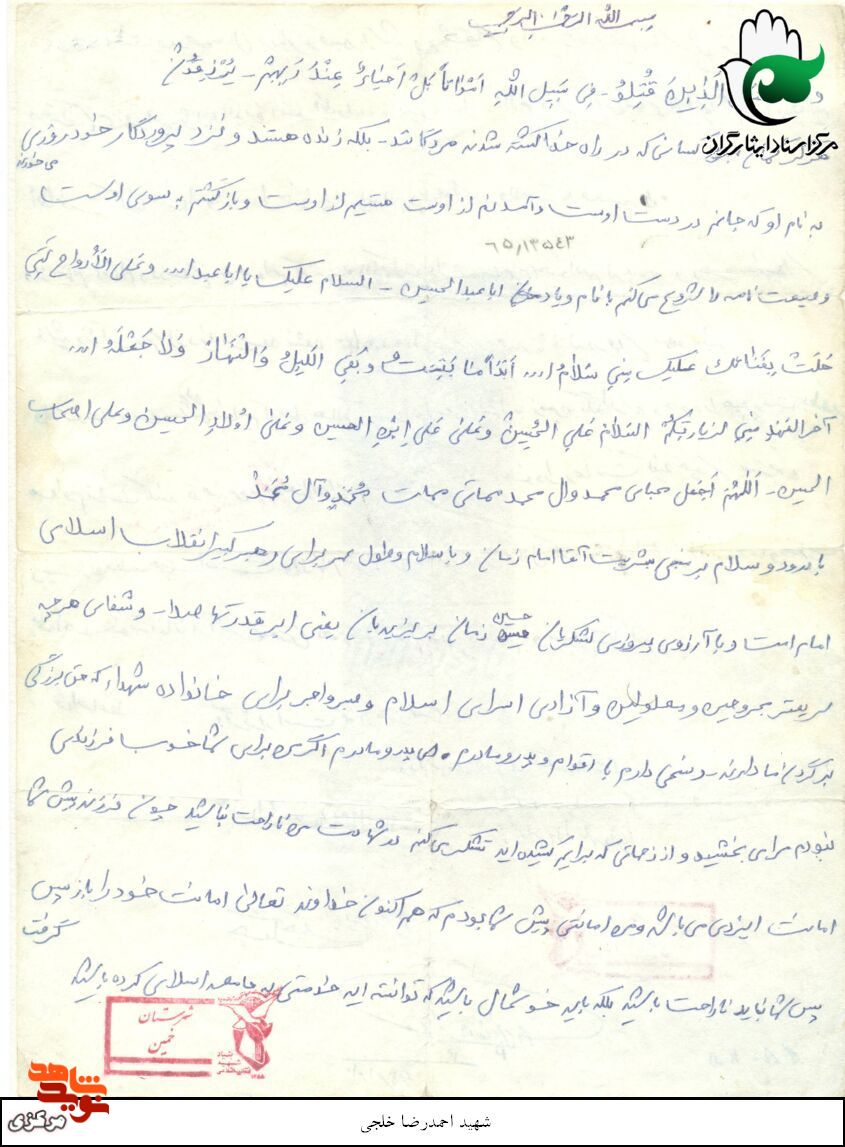 بسم الله الرحمن الرحیم
الَّذِینَ قُتِلُو فِی سَبِیلِ اللهِ اَمْوَاتاً بَلْ اَحْیَاءٌ عِنْدَ رَبِّهِمْ یُرْزَقُونَ
مرکز اسناد ایثارگران
کسانی که در راه خدا کشته شدند مردگانند - بلکه زنده هستند و نزد پروردگار خود روزی
می خورند
به نام او که جانم در دست اوست و آمدنم از اوست هستیم از اوست و بازگشتم به سوی اوست
۶۵/۱۳۵۴۳
وصیت نامه را شروع می کنم با نام و یاد اباعبدالحسین - السلام علیک یا اباعبدالله و عَلَی الْأَرْواحِ الَّتی
حَلَّتْ بِفَنائِکَ عَلَیْکَ مِنّی سَلامُ الله اَبَداً ما بَقیتُ وَ بَقِیَ اللَّیلُ وَ النَّهارُ وَ لا جَعَلَهُ الله
آخر العهد مِنّی لِزِیارَتِکُمْ السَّلامُ عَلَی الْحُسَیْن وَ عَلی عَلی اِبْنِ الحسین وَ عَلی اَوْلادِ الحسین و علی اصحاب
الحسین - اَللّهُمَّ اجْعَل محیای محمد وال محمد مماتی ممات مُحَمَّدٍ وَ آلِ مُحَمَّدْ
با درود و سلام بر منجی بشریت آقا امام زمان و با سلام و طول عمر برای رهبر کبیر انقلاب اسلامی
امام امت و با آرزوی پیروزی لشکریان حسین زمان بر یزیدیان یعنی ابر قدرتها صدا - و شفای هر چه
سریعتر مجروحین و معلولین و آزادی اسرای اسلام و صبر و اجر برای خانواده شهداء که حق بزرگی
بر گردن ما دارند - سخنی دارم با اقوام و پدر و مادرم . ای پدر و مادرم اگر من برای شما خوب فرزندی
نبودم مرا می بخشید و از زحماتی که برایم کشیده اید تشکر می کنم در شهادت من ناراحت نباشید چون فرزند پیش شما
امانت ایزدی می باشد و من امانتی پیش شما بودم که هم اکنون خداوند تعالی امانت خود را باز پس
گرفت
پس شما نباید ناراحت باشید بلکه باید خوشحال باشید که توانسته اید خدمتی به جامعه اسلامی کرده باشید
شهرستان
خمین
نوید شاهد
مرکزی
شهید احمدرضا خلجی